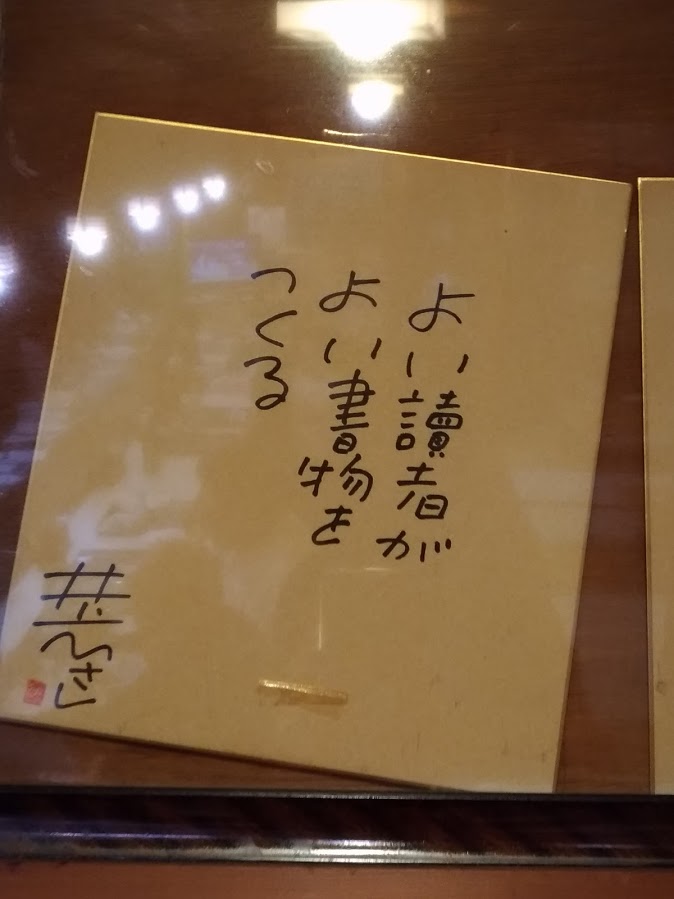 よい讀者が
よい書物を
つくる
井上ひさし